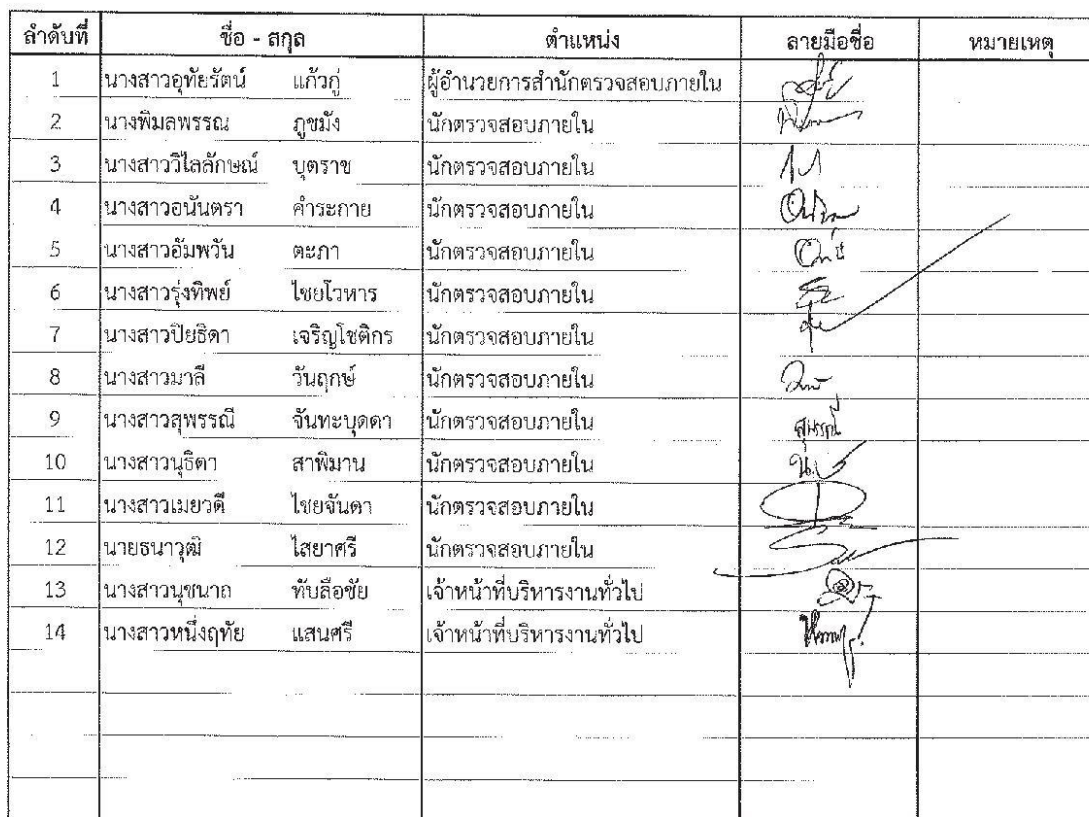 ลำดับที่ ชื่อ - สกุล ตำแหน่ง ลายมือชื่อ หมายเหตุ
1 นางสาวอุทัยรัตน์ แก้วกู่ ผู้อำนวยการสำนักตรวจสอบภายใน
2 นางพิมลพรรณ ภูขมัง นักตรวจสอบภายใน
3 นางสาววิไลลักษณ์ บุตราช นักตรวจสอบภายใน
4 นางสาวอนันตรา คำระกาย นักตรวจสอบภายใน
5 นางสาวอัมพวัน ตะภา นักตรวจสอบภายใน
6 นางสาวรุ่งทิพย์ ไชยโวหาร นักตรวจสอบภายใน
7 นางสาวปิยธิดา เจริญโชติกร นักตรวจสอบภายใน
8 นางสาวมาลี วันฤกษ์ นักตรวจสอบภายใน
9 นางสาวสุพรรณี จันทะบุดดา นักตรวจสอบภายใน สุพรรณี
10 นางสาวนุธิดา สาพิมาน นักตรวจสอบภายใน
11 นางสาวเมยวดี ไชยจันดา นักตรวจสอบภายใน
12 นายธนาวุฒิ ไสยาศรี นักตรวจสอบภายใน
13 นางสาวนุชนาถ ทับลือชัย เจ้าหน้าที่บริหารงานทั่วไป
14 นางสาวหนึ่งฤทัย แสนศรี เจ้าหน้าที่บริหารงานทั่วไป